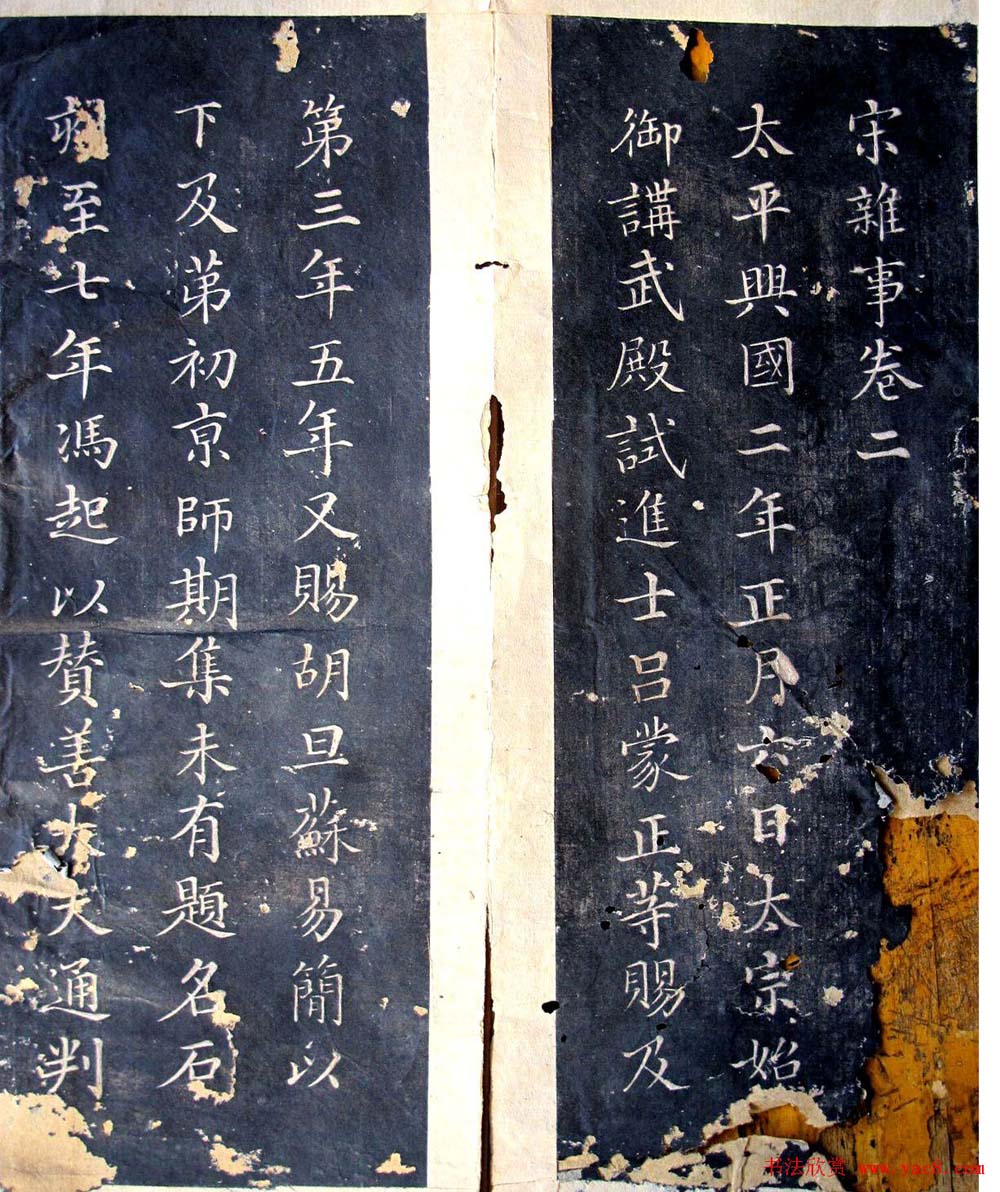 宋雜事卷二
太平興國二年正月六日太宗始
御講武殿試進士呂蒙正等賜及
第三年五年又賜胡旦蘇易簡以
下及第初京師期集未有題名石
刻至七年馮起以贊善大夫通判
书法欣赏 www.yac8.com